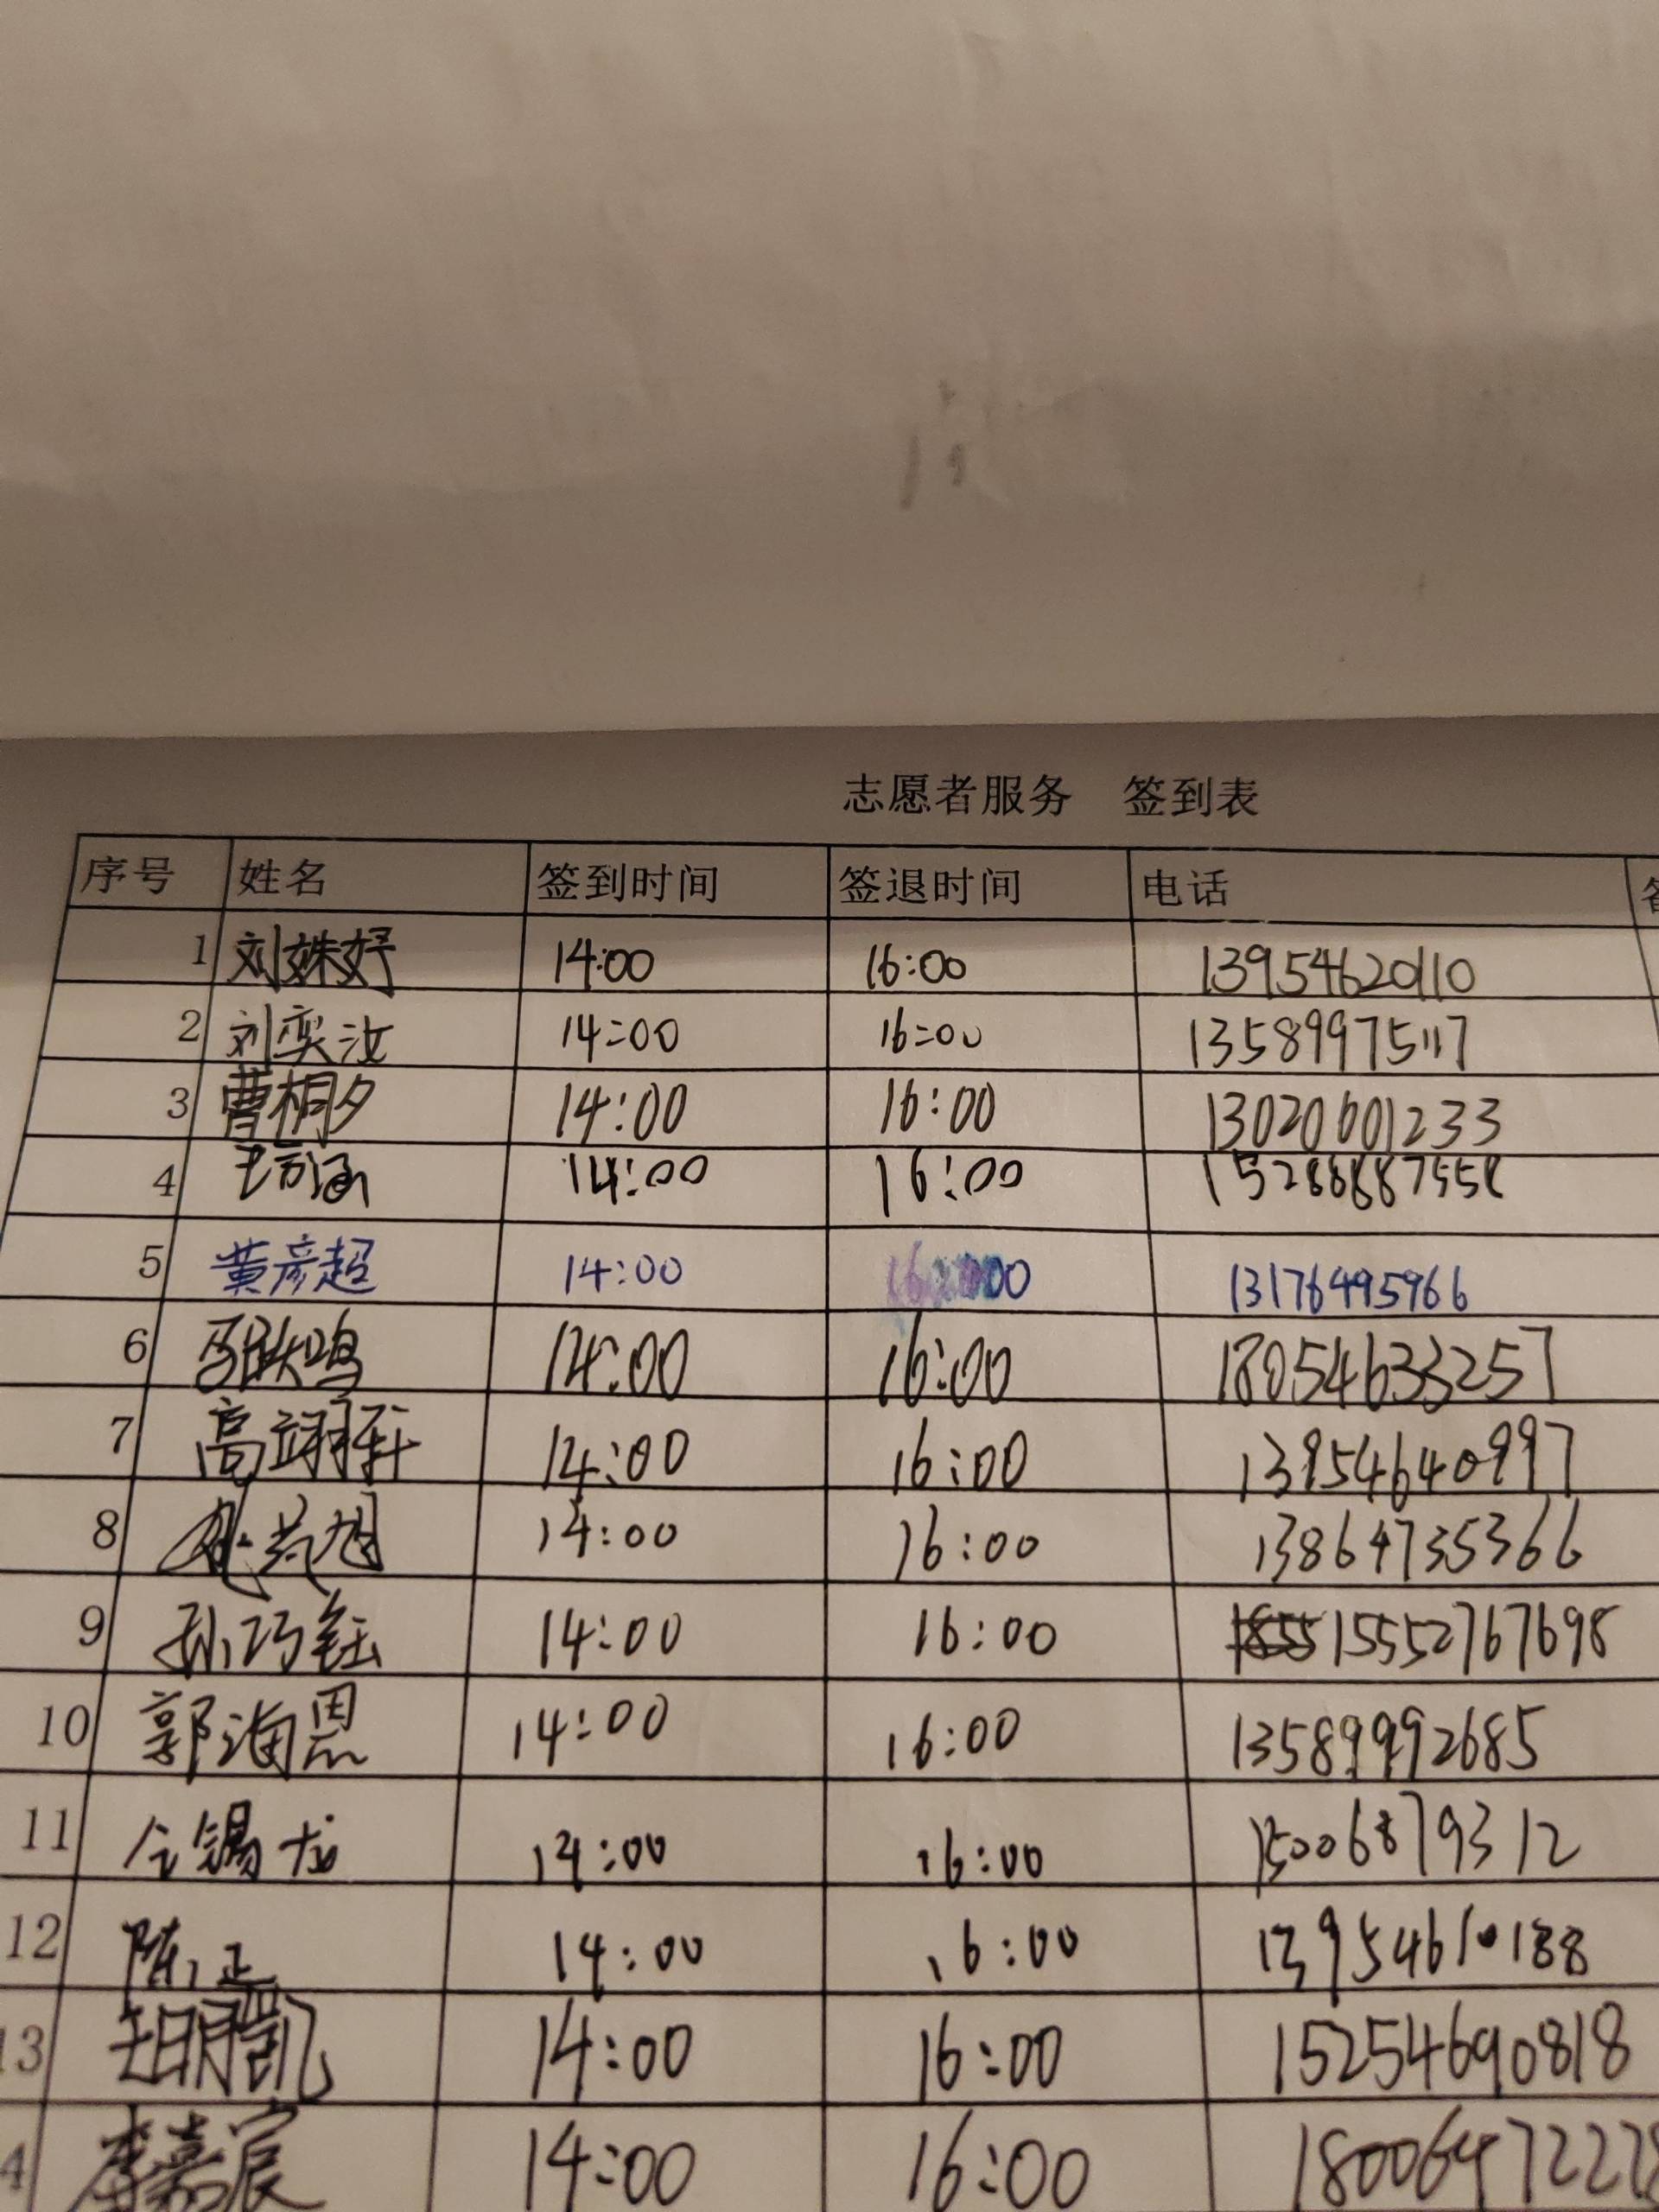 志愿者服务 签到表
序号 姓名 签到时间 签退时间 电话
1 刘姝妤 14:00 16:00 13954620110
2 刘奕汝 14:00 16:00 13589975117
3 曹桐夕 14:00 16:00 13020601233
4 14:00 16:00
5 黄彦超 14:00 16:00 13176495966
6 14:00 16:00 18054633257
7 高翊轩 14:00 16:00 13954640997
8 14:00 16:00 13864735366
9 孙巧钰 14:00 16:00 15552767698
10 郭海恩 14:00 16:00 13589992685
11 仝锡龙 14:00 16:00 15006879312
12 陈正 14:00 16:00 13954610188
13 王明凯 14:00 16:00 15254690818
4 李嘉宸 14:00 16:00